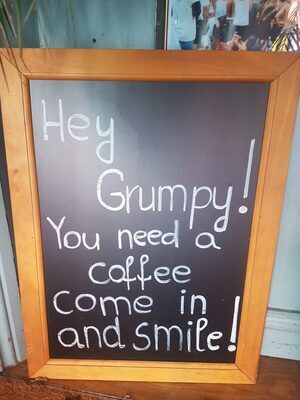 Hey
Grumpy!
You need a
coffee
come in
and smile!